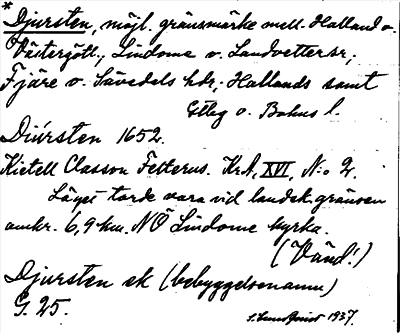 * Djursten, möjl. gränsmärke mell. Halland o.
Västergötl., Lindome o. Landvetter sr;
Fjäre o. Sävedals hdr; Hallands samt
Gtbg o. Bohus l.
Diúrsten 1652.
Kietell Classon Felterus. KrA, XVI, N:o 2.
Läget torde vara vid landsk.gränsen
omkr. 6,9 km. NÖ Lindome kyrka.
(Vänd!)
Djursten ek (bebyggelsenamn)
G. 25.
1937.